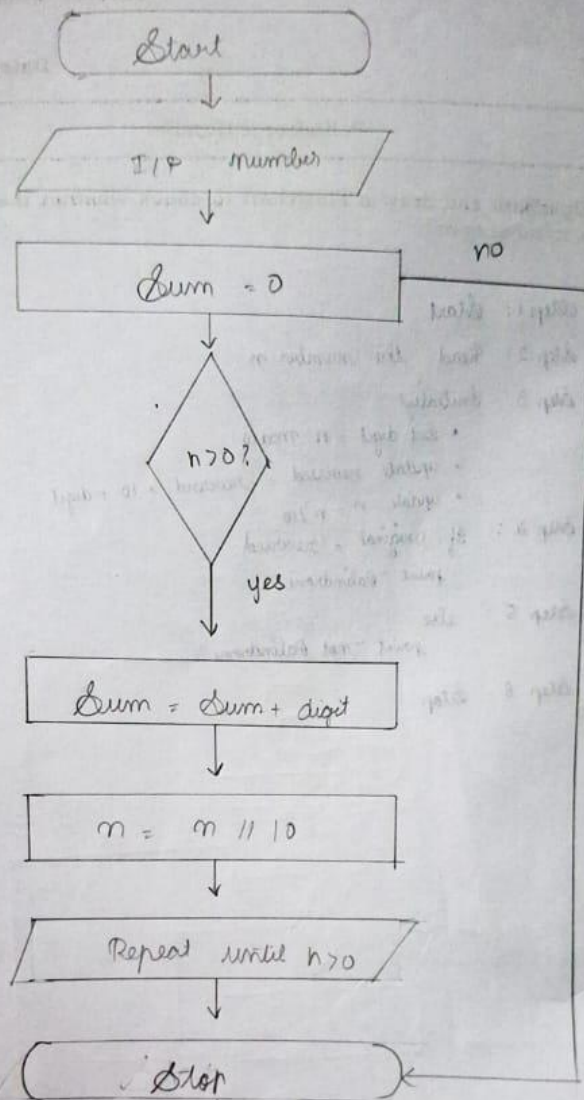 Start
I/P number
Sum = 0
no
n>0?
yes
Sum = Sum + digit
n = n // 10
Repeat until n>0
Stop